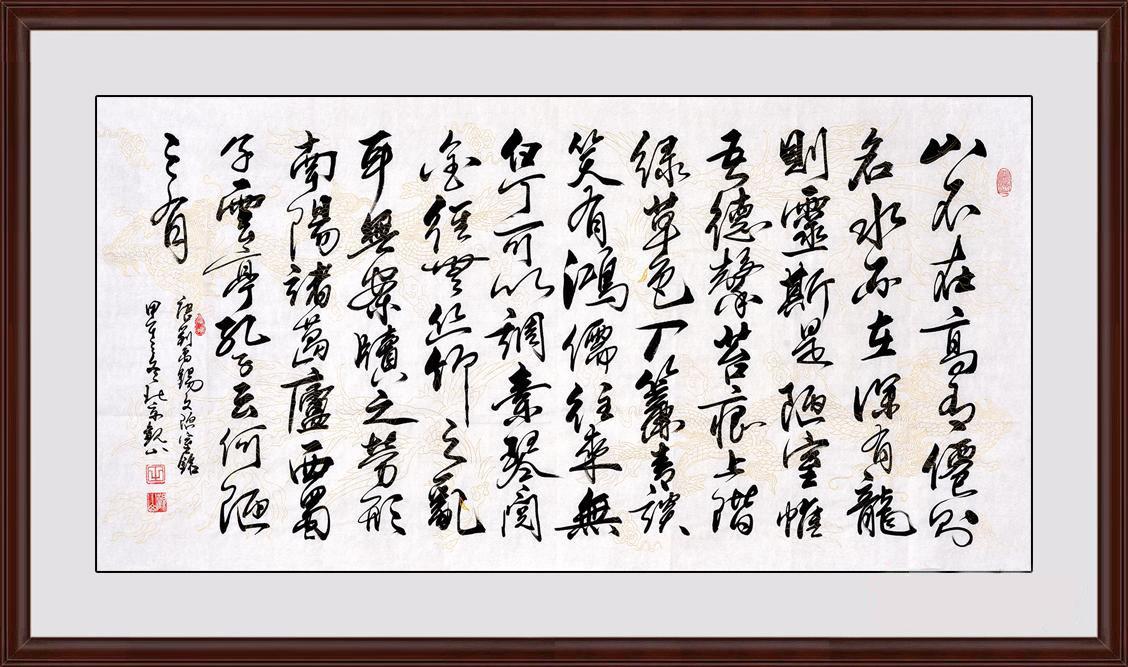 山不在高有僊則
名水不在深有龍
則靈斯是陋室惟
吾德馨苔痕上階
綠草色入簾青談
笑有鴻儒往來無
白丁可以調素琴閱
金經無絲竹之亂
耳無案牘之勞形
南陽諸葛廬西蜀
子雲亭孔子云何陋
之有
唐劉禹錫文陋室銘
甲冬北京觀山